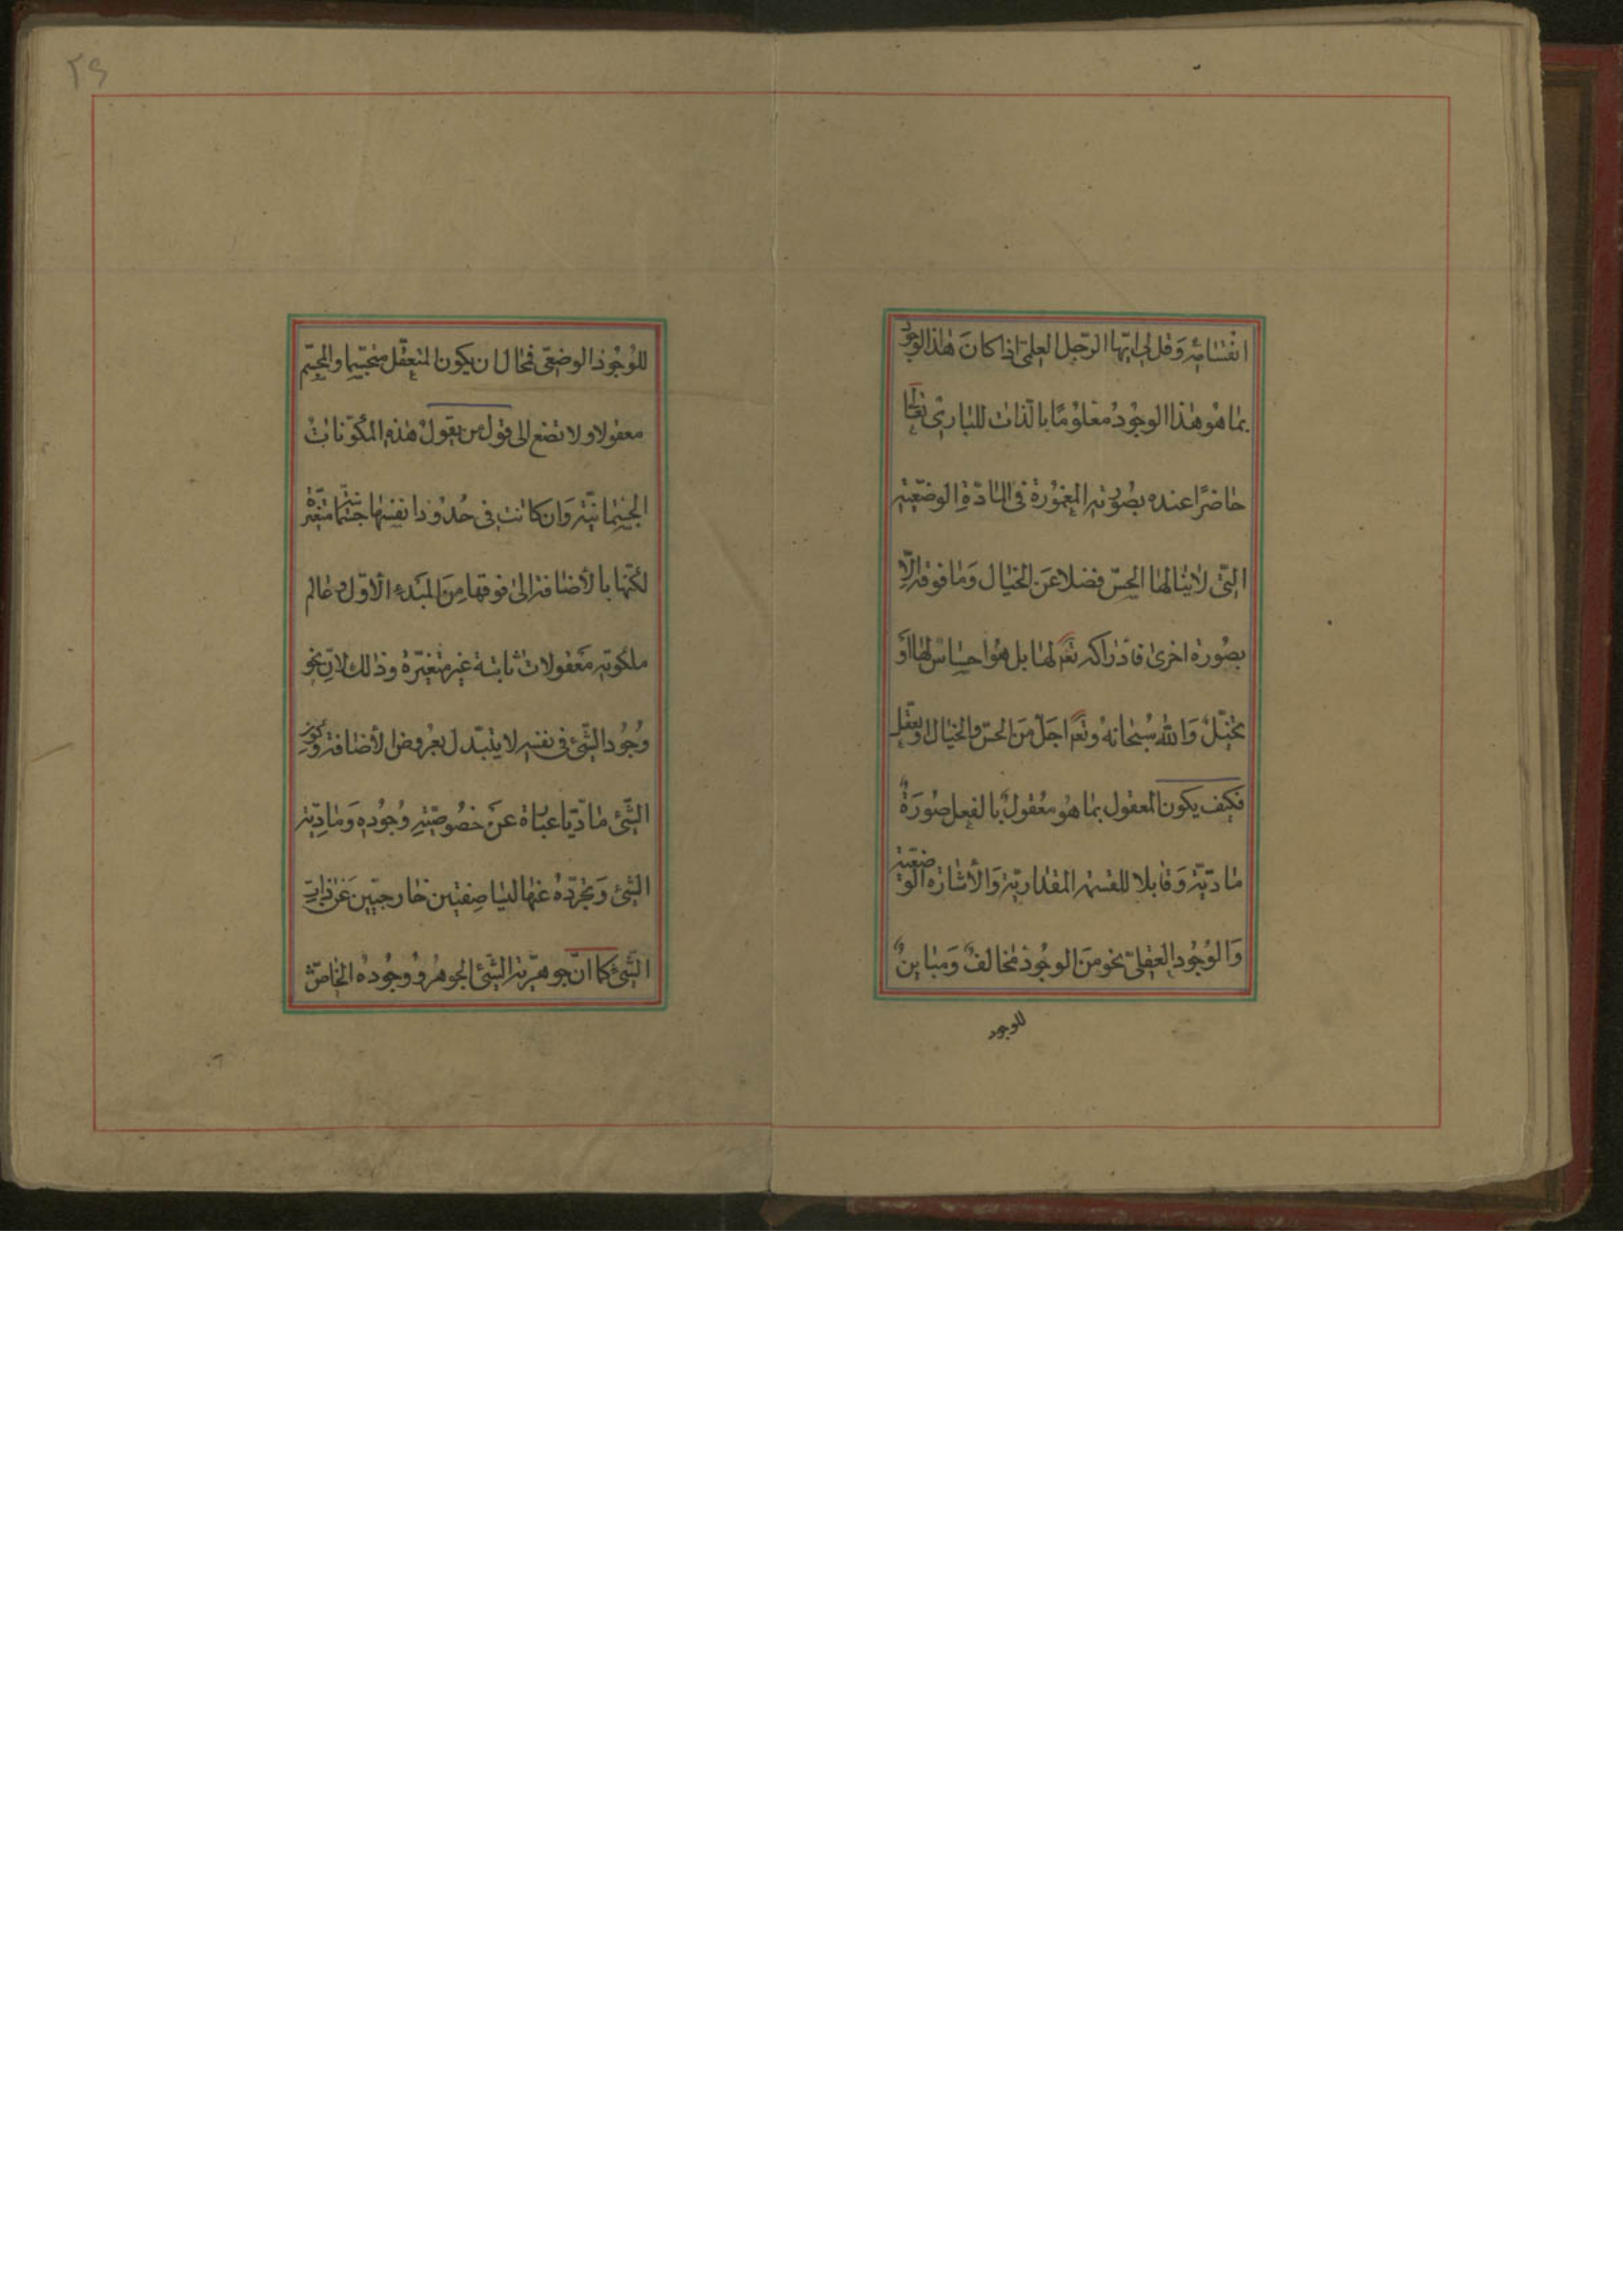 انقسامه وقل لی ایها الرجل العلمی اذا کان هذا الوجود
بما هو هذا الوجود معلوما بالذات للباری تعالی
حاضرا عنده بصورته المغمورة فی المادة الوضعیة
التی لا ینالها الحس فضلا عن الخیال وما فوقه الا
بصورة اخری فادراکه تع لها بل هو احساس لها او
تخیل والله سبحانه وتع اجل من الحس والخیال او تعقل
فکیف یکون المعقول بما هو معقول بالفعل صورة
مادیة وقابلا للقسمة المقداریة والأشارة الوضعیة
والوجود العقلی نحو من الوجود مخالف ومباین
للوجود
۲۹
للوجود الوضعی فمحال ان یکون المتعقل متجسما والمجسم
معقولا ولا تضع الی قول من یقول هذه المکونات
الجسمانیة وان کانت فی حدود انفسها جسمانیة متغیرة
لکنها بالأضافة الی فوقها من المبدء الأول و عالم
ملکوته معقولات ثابتة غیر متغیرة وذالك لان نحو
وجود الشیئ فی نفسه لا یتبدل بعروض الأضافة وکون
الشیئ مادیا عبارة عن خصوصیة وجوده ومادیة
الشیئ وتجرده عنها لیسا صفتین خارجیین عن ذات
الشیئ کما ان جوهریة الشیئ الجوهر و وجوده الخاص